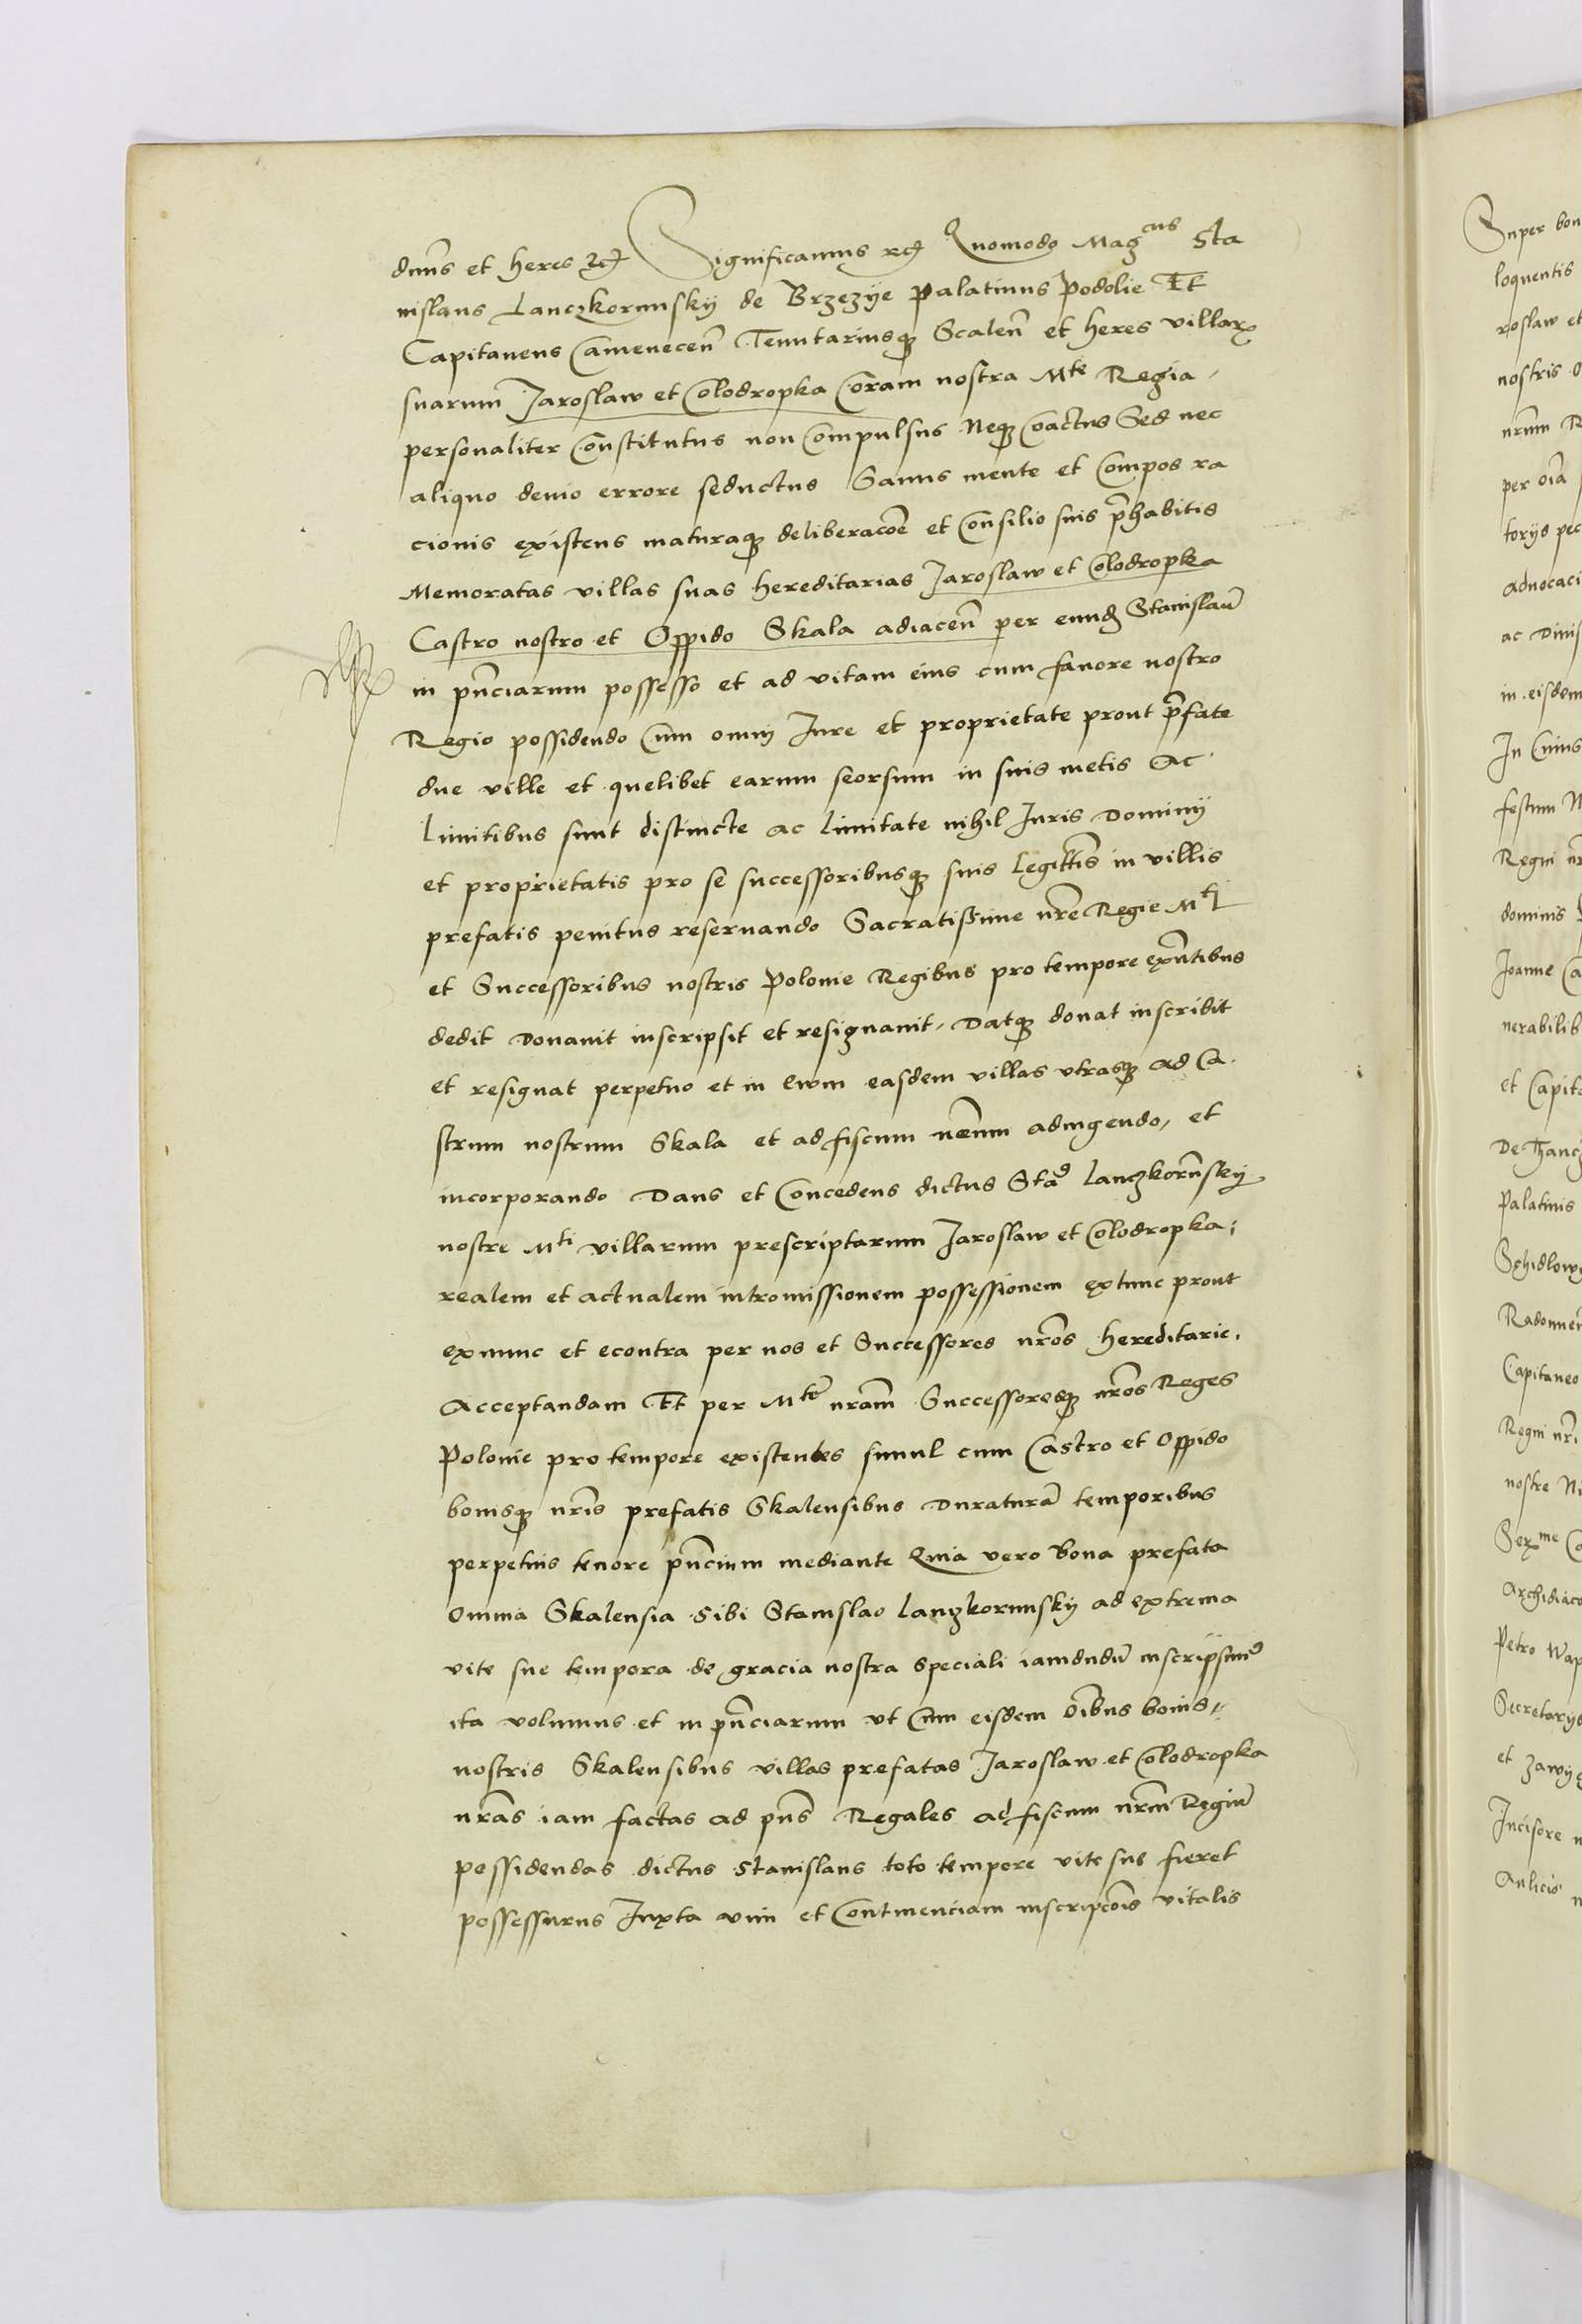 dnus et heres etc Significamus etc Quomodo Magcus Sta
nislaus Lanczkorunskij de Brzezije Palatinus Podolie Et
Capitaneus Camenecen Tenutariusque Scalen et heres villarum
suarum Jaroslaw et Colodropka Coram nostra Mte Regia
personaliter Constitutus non Compulsus Neque Coactus Sed nec
aliquo devio errore seductus Sanus mente et Compos ra
cionis existens maturaque deliberacoe et Consilio suis prehabitis
Memoratas villas suas hereditarias Jaroslaw et Colodropka
Castro nostro et Oppido Skala adiacen per eundem Stanislau
in pnciarum possesso et ad vitam eius cum favore nostro
Regio possidendo Cum omni Jure et proprietate prout prefate
due ville et quelibet earum seorsum in suis metis Ac
limitibus sunt distincte ac limitate nihil Juris Dominij
et proprietatis pro se successoribusque suis legittis in villis
prefatis penitus reservando Sacratissime nre Regie Mti
et Successoribus nostris Polonie Regibus pro tempore exntibus
dedit Donavit inscripsit et resignavit, Datque donat inscribit
et resignat perpetuo et in ewm easdem villas utrasque ad Ca
strum nostrum Skala et ad fiscum nrum adiugendo, et
incorporando Dans et Concedens dictus Sta Lanczkorunskij
nostre Mti villarum prescriptarum Jaroslaw et Colodropka
realem et actualem intromissionem possessionem extunc prout
exnunc et econtra per nos et Successores nros hereditarie.
Acceptandam Et per Mte nram Successoresque nros Reges
Polonie pro tempore existentes simul cum Castro et Oppido
bonisque nris prefatis Skalensibus Duratura temporibus
perpetuis tenore pncium mediante Quia vero bona prefata
omnia Skalensia Sibi Stanislao Lanczkorunskij ad extrema
vite sue tempora de gracia nostra speciali iamdudu inscripsimus
ita volumus et in pnciarum ut Cum eisdem oibus bonis
nostris Skalensibus villas prefatas Jaroslaw et Colodropka
nras iam factas ad pns Regales ad fiscum nrm Regiu
possidendas dictus Stanislaus toto tempore vite sue fieret
possessurus Juxta vim et Continenciam inscripcois vitalis
Super bon
loquentis
roslaw et
nostris
nrum R
per oia
torijs pec
advocaci
ac Divis
in eisdem
In Cuius
festum
Regni nr
dominis
Joanne Ca
nerabilib
et Capita
De Thancz
Palatinis
Schidlowy
Radomien
Capitaneo
Regni nri
nostre
Serme
Archidiaco
Petro Wap
Secretarijs
et Zawij
Incisore n
Aulicis